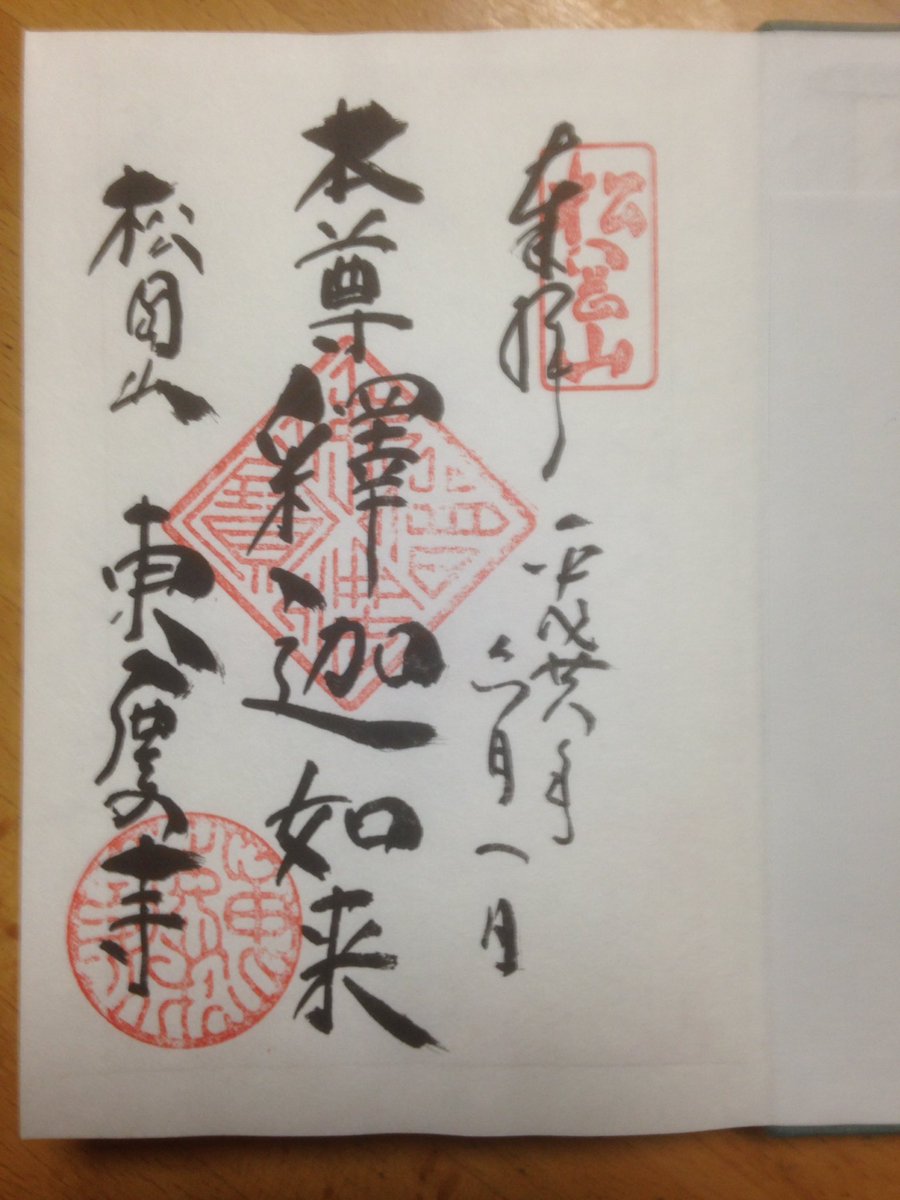 松岡山
奉拝
平成廿八年
六月一日
本尊釋迦如来
松岡山 東慶寺